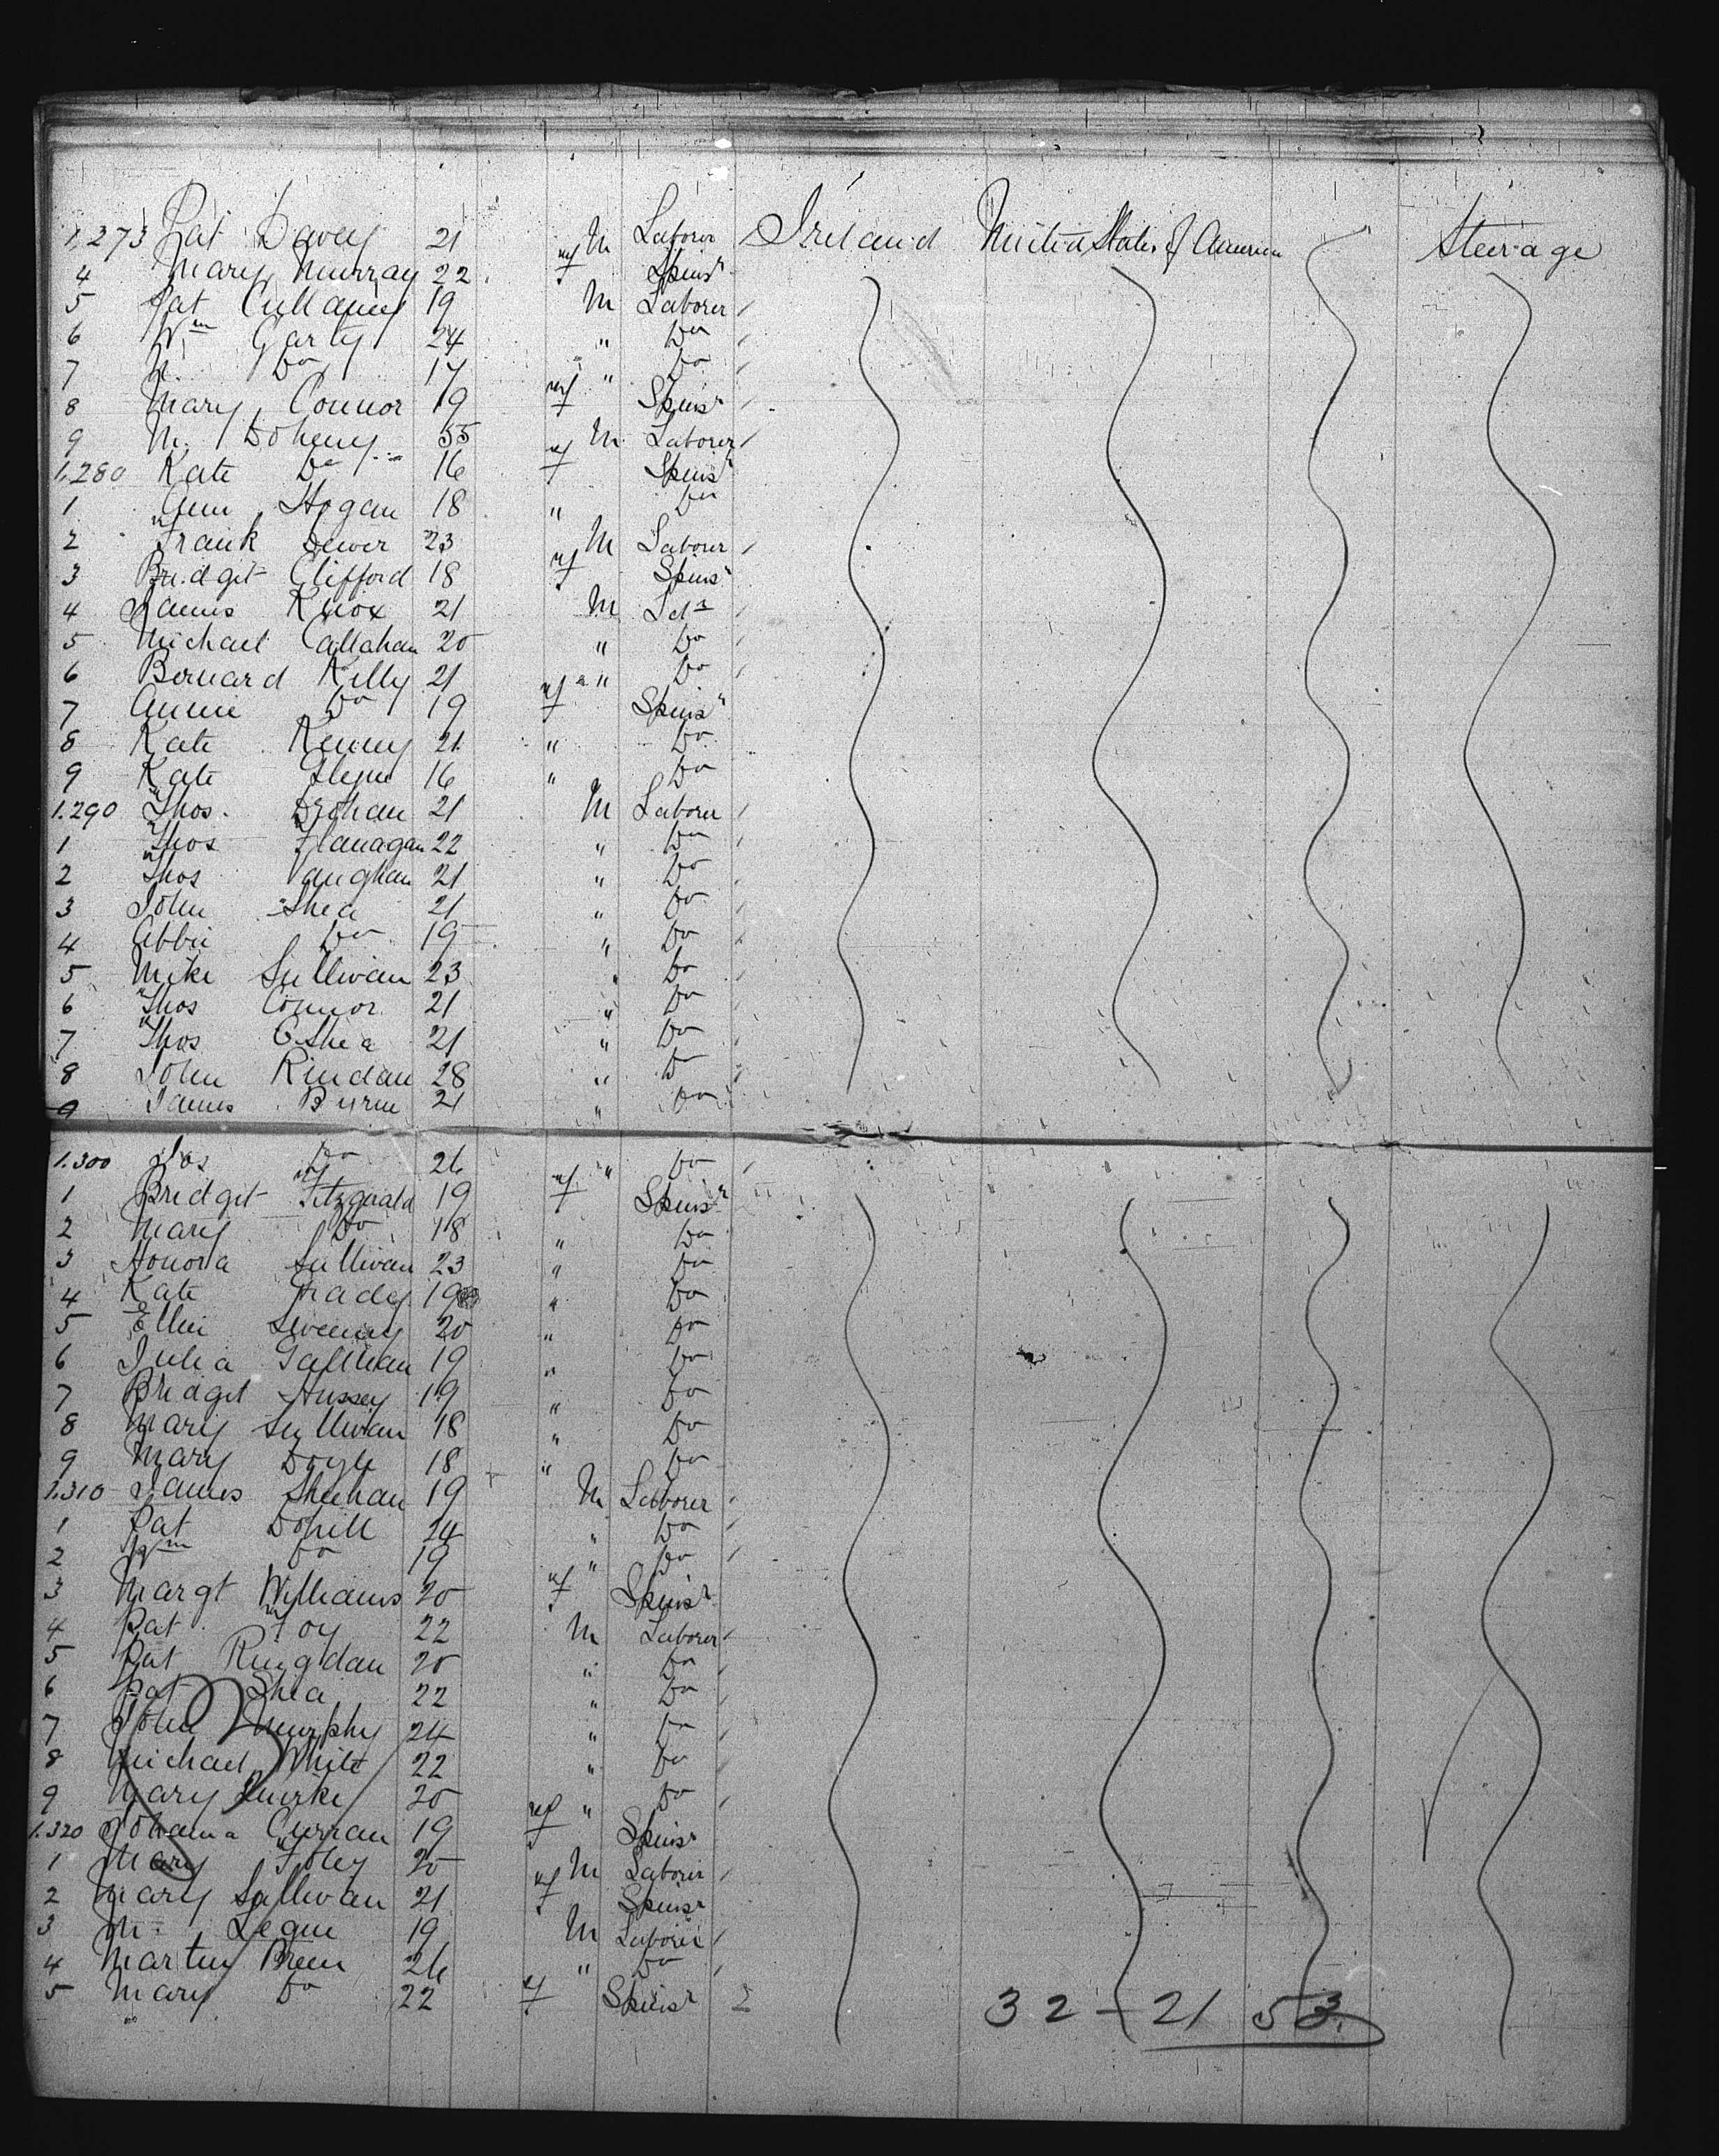 1,273 Pat Davey 21 M Laborer Ireland United States of America Steerage
4 Mary Murray 22 f Spins'r
5 Pat Cullaney 19 M Laborer
6 Wm Garty 24 " Do
7 Do 17 " Do
8 Mary Connor 19 f Spinsr
9 M. Doheny 55 M Laborer
1,280 Kate Do 16 f Spinsr
1 Ann Hogan 18 " Do
2 Frank Dewer 23 M Laborer
3 Bridgit Clifford 18 f Spinsr
4 James Knox 21 M
5 Michael Callahan 20 " Do
6 Bernard Kelly 21 " Do
7 Annie Do 19 f Spinsr
8 Kate Kenny 21 " Do
9 Kate Glynn 16 " Do
1.290 Thos. Drohan 21 M Laborer
1 Thos Flanagan 22 " Do
2 Thos Vaughan 21 " Do
3 John Shea 21 " Do
4 Abbie Do 19 " Do
5 Mike Sullivan 23 " Do
6 Thos Connor 21 " Do
7 Thos OShea 21 " Do
8 John Rindan 28 " Do
9 James Burne 21 " Do
1.300 Jos Do 26 " Do
1 Bridgit Fitzgerald 19 f Spinsr
2 Mary Do 18 " Do
3 Honora Sullivan 23 " Do
4 Kate Grady 19 " Do
5 Ellen Sweeny 20 " Do
6 Julia Sullivan 19 " Do
7 Bridget Hussey 19 " Do
8 Mary Sullivan 18 " Do
9 Mary Doyle 18 " Do
1.310 James Sheehan 19 M Laborer
1 Pat Dohill 24 " Do
2 Wm Do 19 " Do
3 Margt Williams 20 f Spinsr
4 Pat Foy 22 M Laborer
5 Pat Ringdan 20 " Do
6 Pat Shea 22 " Do
7 John Murphy 24 " Do
8 Michael White 22 " Do
9 Mary Quirke 20 " Do
1.320 Johanna Curran 19 f Spinsr
1 Mary Foley 20 M Laborer
2 Mary Sullivan 21 f Spinsr
3 M. Legue 19 M Laborer
4 Martin Breen 26 " Do
5 Mary Do 22 f Spinsr
32 - 21 53